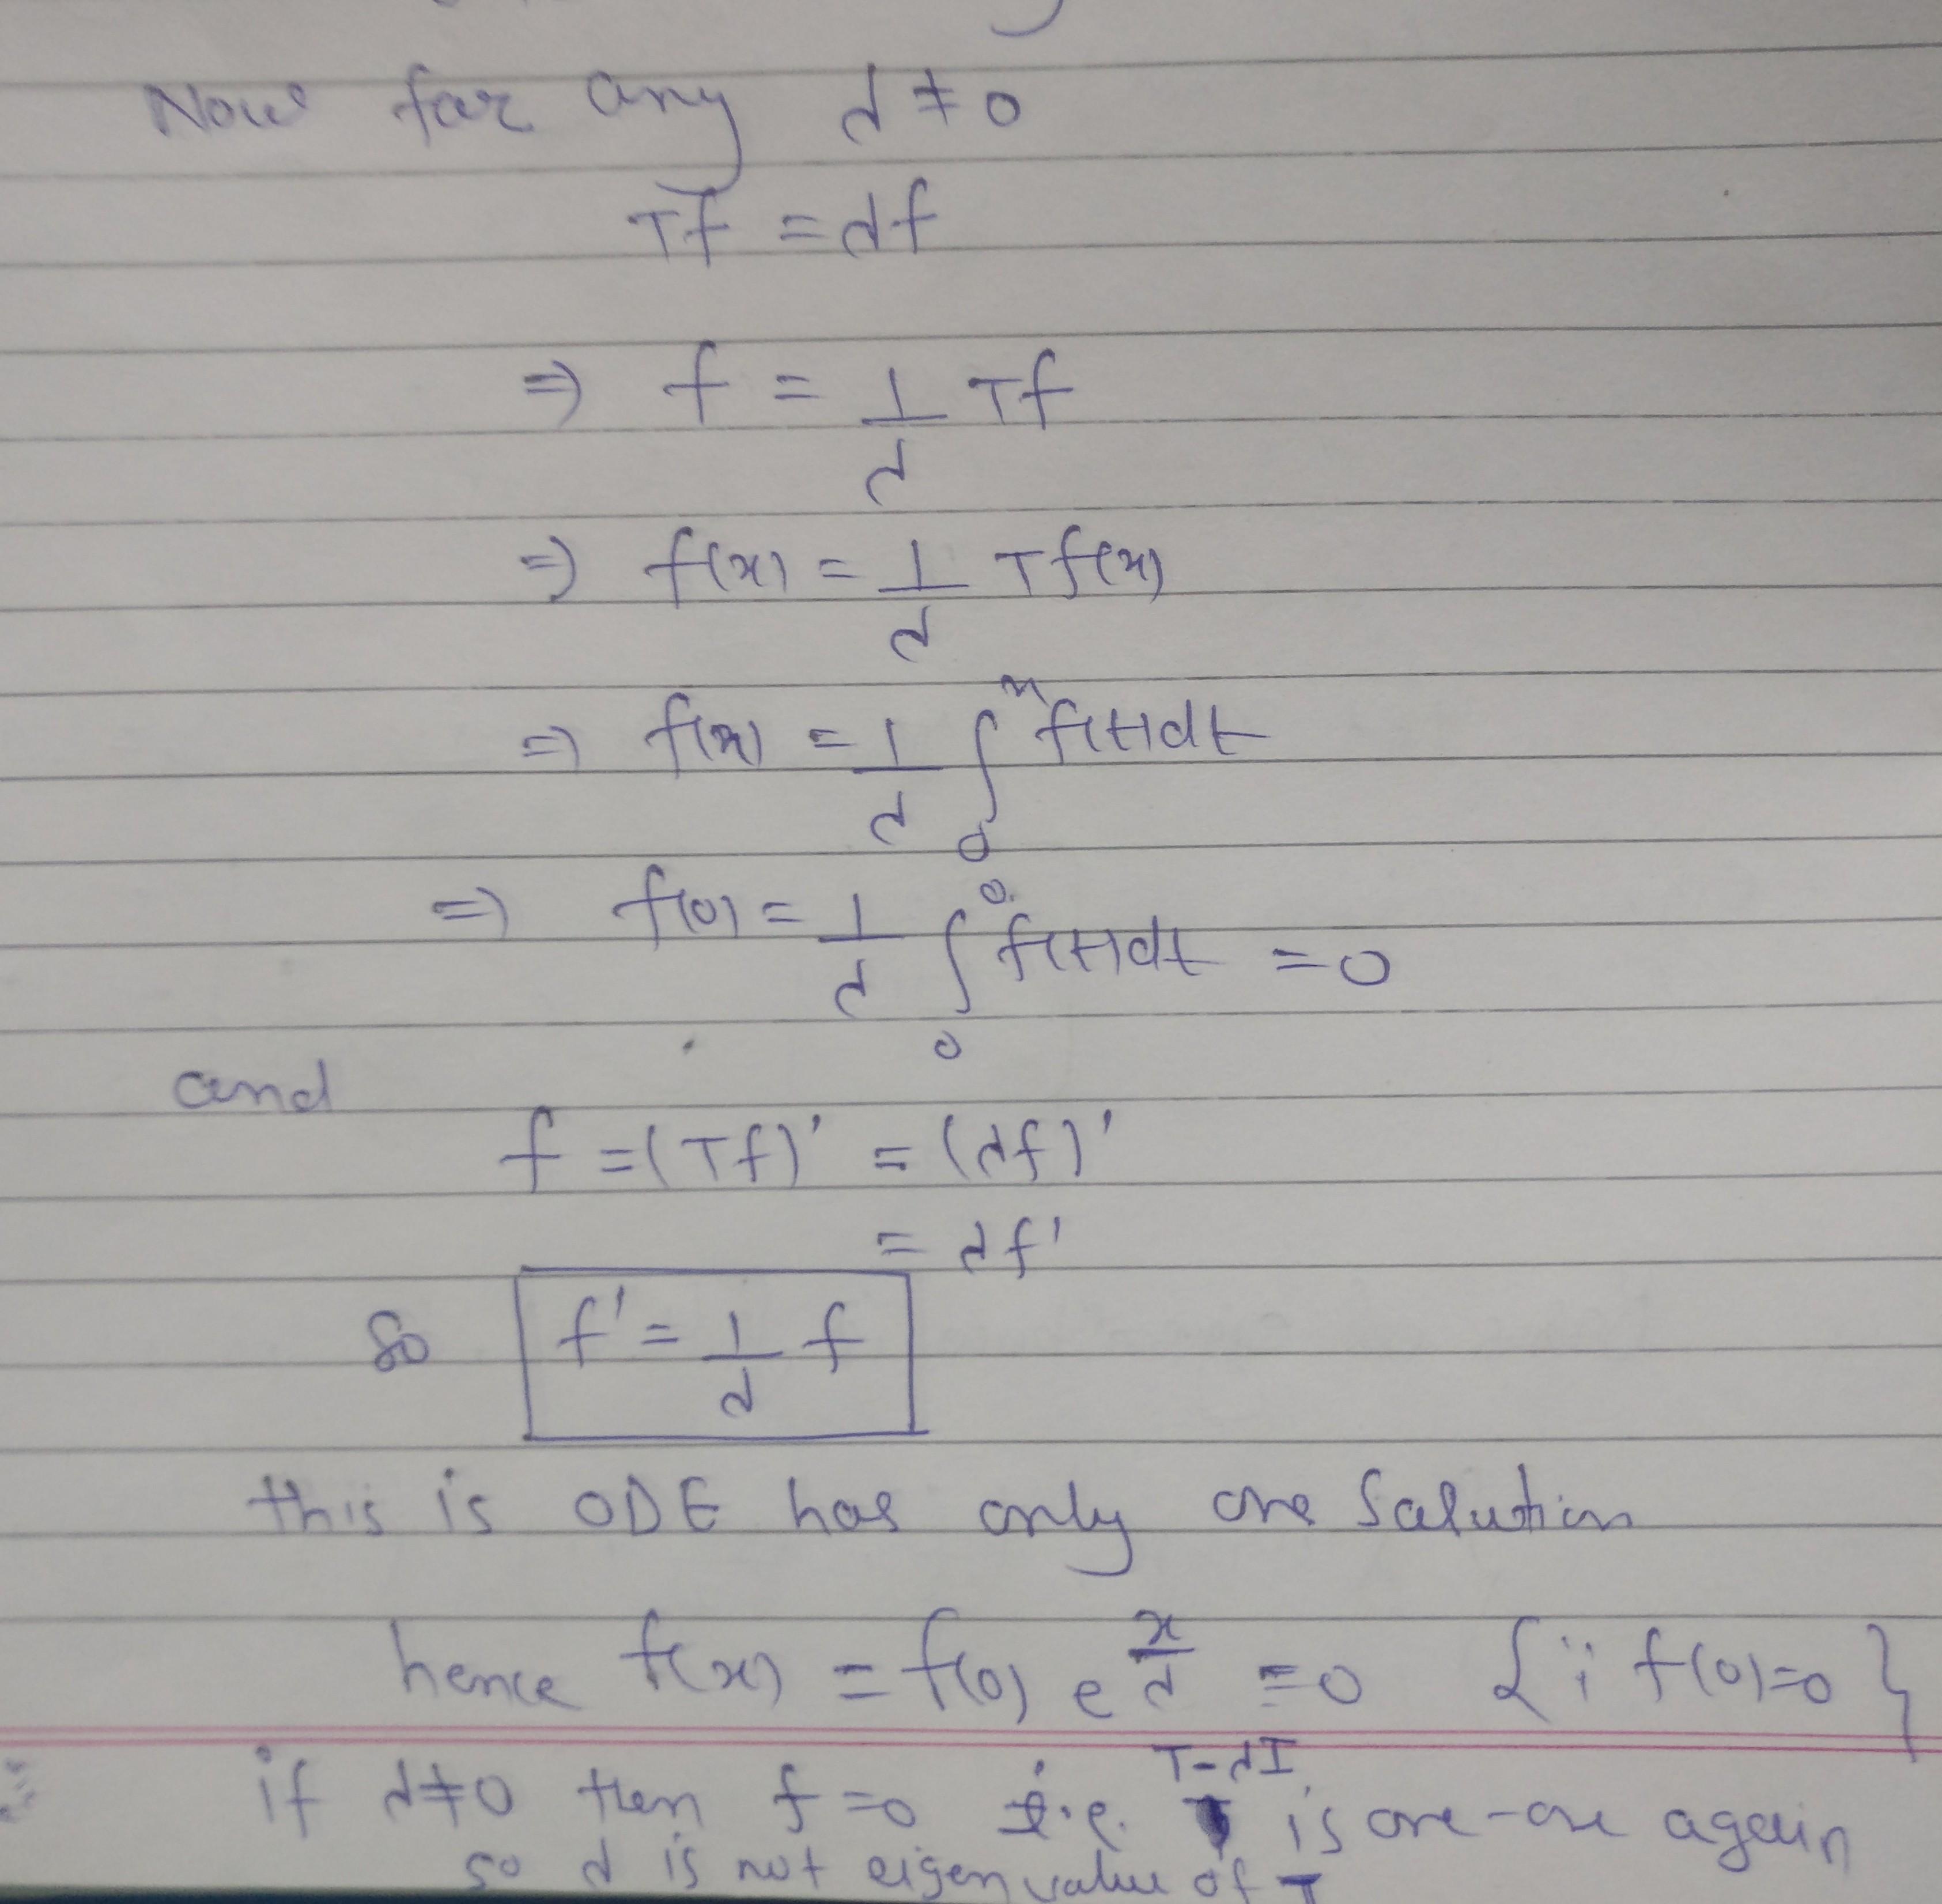 Now for any d ≠ 0
Tf = df
⇒ f = 1/d Tf
⇒ f(x) = 1/d Tf(x)
⇒ f(x) = 1/d ∫₀ˣ f(t)dt
⇒ f(0) = 1/d ∫₀⁰ f(t)dt = 0
and
f = (Tf)' = (df)'
= df'
So f' = 1/d f
this is ODE has only one Solution
hence f(x) = f(0) e^(x/d) = 0 {∵ f(0)=0}
if d≠0 then f=0 i.e. T-dI is one-one again
so d is not eigen value of T